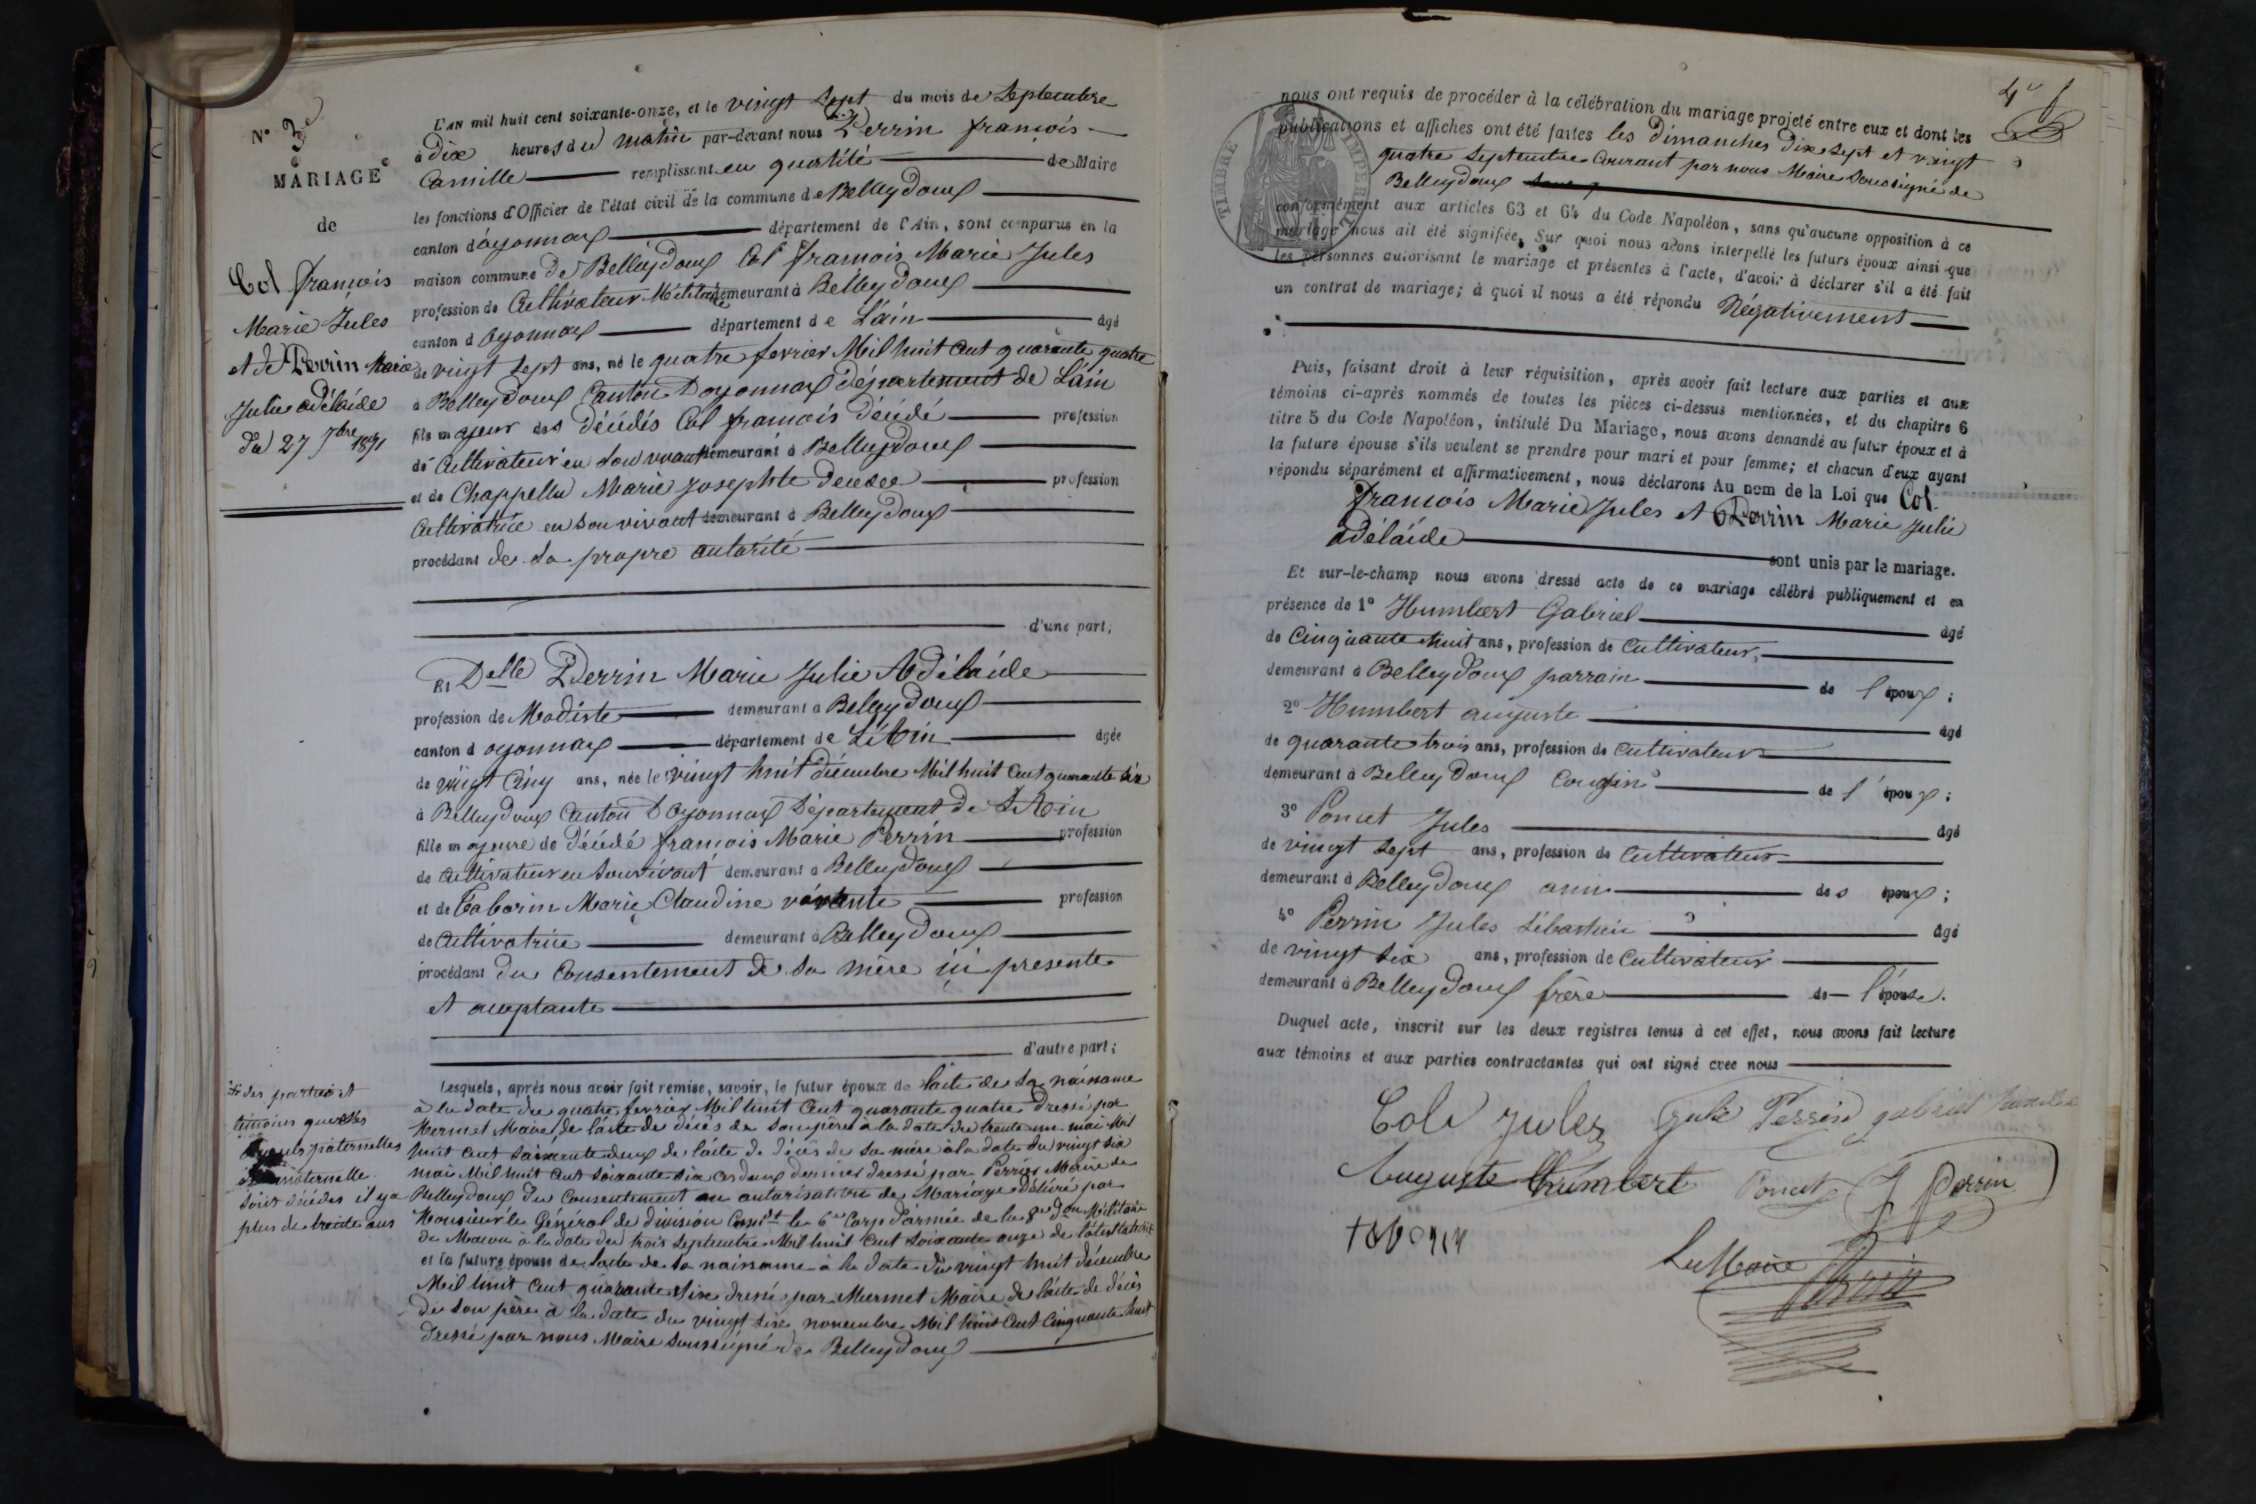 N° 3e
MARIAGE
de
Col françois
Marie Jules
et de Perrin Marie
Julie adélaïde
Du 27 7bre 1871
L'AN mil huit cent soixante-onze, et le vingt sept du mois de Septembre
à dix heures du matin par-devant nous Perrin françois
Camille remplissant en quatité de Maire
les fonctions d'Officier de l'état civil de la commune de Belleydoux
canton d'oyonnax département de l'Ain, sont comparus en la
maison commune de Belleydoux Col françois Marie Jules
profession de Cultivateur Militaire demeurant à Belleydoux
canton d oyonnax département de L'ain âgé
de vingt sept ans, né le quatre fevrier Mil huit Cent quarante quatre
à Belleydoux Canton Doyonnax département de L'ain
fils majeur des décédés Col françois décédé profession
de Cultivateur en son vivant demeurant à Belleydoux
et de Chappellu Marie Josephte décédée profession
Cultivatrice en son vivant demeurant à Belleydoux
procédant de sa propre autorité
d'une part;
Et Delle Perrin Marie Julie Adélaïde
profession de Modiste demeurant à Belleydoux
canton d oyonnax département de L'Ain âgée
de vingt Cinq ans, née le vingt huit décembre Mil huit Cent quarante six
à Belleydoux Canton D'oyonnax Département de L'Ain
fille majeure de décédé françois Marie Perrin profession
de Cultivateur en son vivant demeurant à Belleydoux
et de Tabourin Marie Claudine vivante profession
de Cultivatrice demeurant à Belleydoux
procédant du Consentement de sa mère ici presente
et acceptante
d'autre part;
Lesquels, après nous avoir fait remise, savoir, le futur époux de l'acte de sa naissance
à la date du quatre fevrier Mil huit Cent quarante quatre Dressé par
Mermet Maire, de l'acte de décès de son père à la date du trente un mai Mil
huit Cent soixante deux de l'acte de décès de sa mère à la date du vingt six
mai Mil huit Cent soixante six Ces deux derniers dressé par Perrin Maire de
Belleydoux du Consentement ou autorisation de Mariage Délivré par
Monsieur le Général de division Comdt le 6e Corps d'armée de la 8e Don Militaire
de Macon à la date du trois Septembre Mil huit Cent soixante onze de
et la future épouse de l'acte de sa naissance à la date du vingt huit décembre
Mil huit Cent quarante six dressé par Mermet Maire de l'acte de décès
de son père à la date du vingt six novembre Mil huit Cent Cinquante huit
Dressé par nous Maire soussigné de Belleydoux
des parties et
témoins que les
ayeuls paternelles
et maternelle
sont décédés il y a
plus de trente ans
4e
TIMBRE IMPERIAL
nous ont requis de procéder à la célébration du mariage projeté entre eux et dont les
publications et affiches ont été faites les dimanches Dix sept et vingt
quatre Septembre Courant par nous Maire Soussigné de
Belleydoux
conformément aux articles 63 et 64 du Code Napoléon, sans qu'aucune opposition à ce
mariage nous ait été signifiée. Sur quoi nous avons interpellé les futurs époux ainsi que
les personnes autorisant le mariage et présentes à l'acte, d'avoir à déclarer s'il a été fait
un contrat de mariage; à quoi il nous a été répondu Négativement
Puis, faisant droit à leur réquisition, après avoir fait lecture aux parties et aux
témoins ci-après nommés de toutes les pièces ci-dessus mentionnées, et du chapitre 6
titre 5 du Code Napoléon, intitulé Du Mariage, nous avons demandé au futur époux et à
la future épouse s'ils veulent se prendre pour mari et pour femme; et chacun d'eux ayant
répondu séparément et affirmativement, nous déclarons Au nom de la Loi que Col
françois Marie Jules et Perrin Marie Julie
adélaïde
sont unis par le mariage.
Et sur-le-champ nous avons dressé acte de ce mariage célébré publiquement et en
présence de 1° Humbert Gabriel âgé
de Cinquante huit ans, profession de Cultivateur,
demeurant à Belleydoux parrain de l'époux;
2° Humbert auguste âgé
de quarante trois ans, profession de cultivateur
demeurant à Belleydoux Cousin de l'époux;
3° Poncet Jules âgé
de vingt sept ans, profession de Cultivateur
demeurant à Belleydoux ami des époux;
4° Perrin Jules Sébastien âgé
de vingt six ans, profession de Cultivateur
demeurant à Belleydoux frère de l'épouse.
Duquel acte, inscrit sur les deux registres tenus à cet effet, nous avons fait lecture
aux témoins et aux parties contractantes qui ont signé avec nous
Col Jules Julie Perrin gabriel
Auguste humbert Poncet J Perrin
Le Maire
Perrin